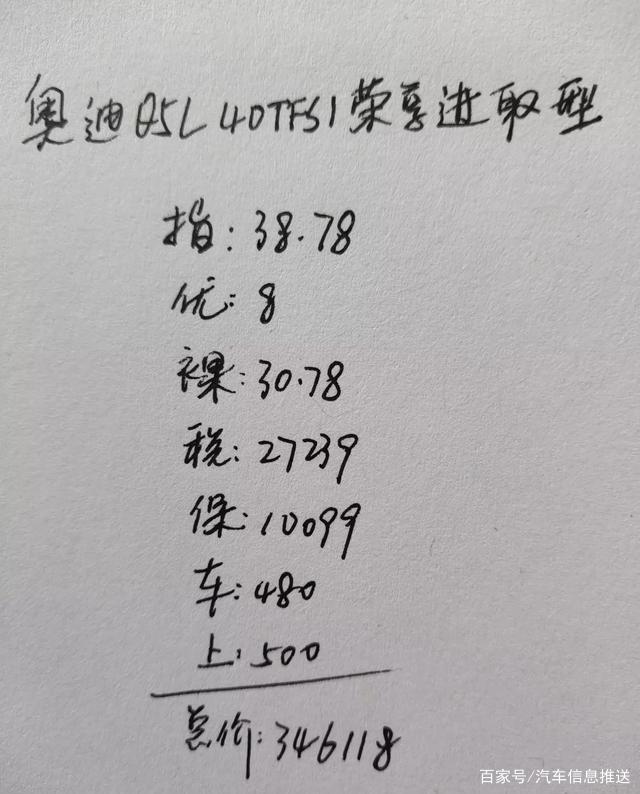 奥迪Q5L 40TFSI荣享进取型
指:38.78
优:8
裸:30.78
税:27239
保:10099
车:480
上:500
总价:346118
百家号/汽车信息推送